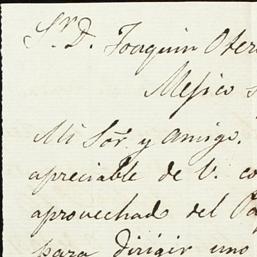 Sr. D. Joaquin Oter
Mejico
Mi Sor. y Amigo.
apreciable de V. co
aprovechado del Pa
para dirigir uno